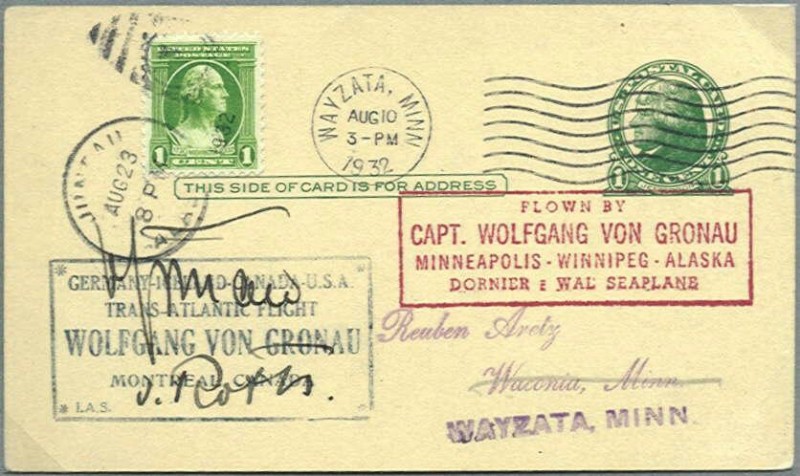 UNITED STATES
POSTAGE
1
1
1932
JUNEAU
AUG 23
8 P
WAYZATA, MINN
AUG 10
3-PM
1932
U.S. POSTAL CARD
ONE CENT
1
1
THIS SIDE OF CARD IS FOR ADDRESS
FLOWN BY
CAPT. WOLFGANG VON GRONAU
MINNEAPOLIS - WINNIPEG - ALASKA
DORNIER : WAL SEAPLANE
GERMANY-ICELAND-CANADA-U.S.A.
TRANS-ATLANTIC FLIGHT
WOLFGANG VON GRONAU
MONTREAL, CANADA
I.A.S.
Reuben Aretz
Waconia, Minn.
WAYZATA, MINN.